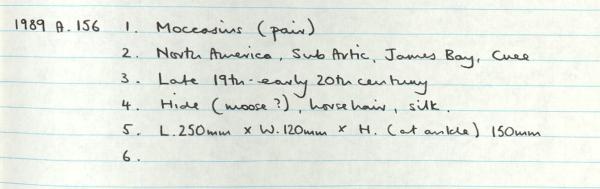 1989 A.156 1. Moccasins (pair)
2. North America, Sub Artic, James Bay, Cree
3. Late 19th-early 20th century
4. Hide (moose?), horsehair, silk.
5. L.250mm x W.120mm x H. (at ankle) 150mm
6.